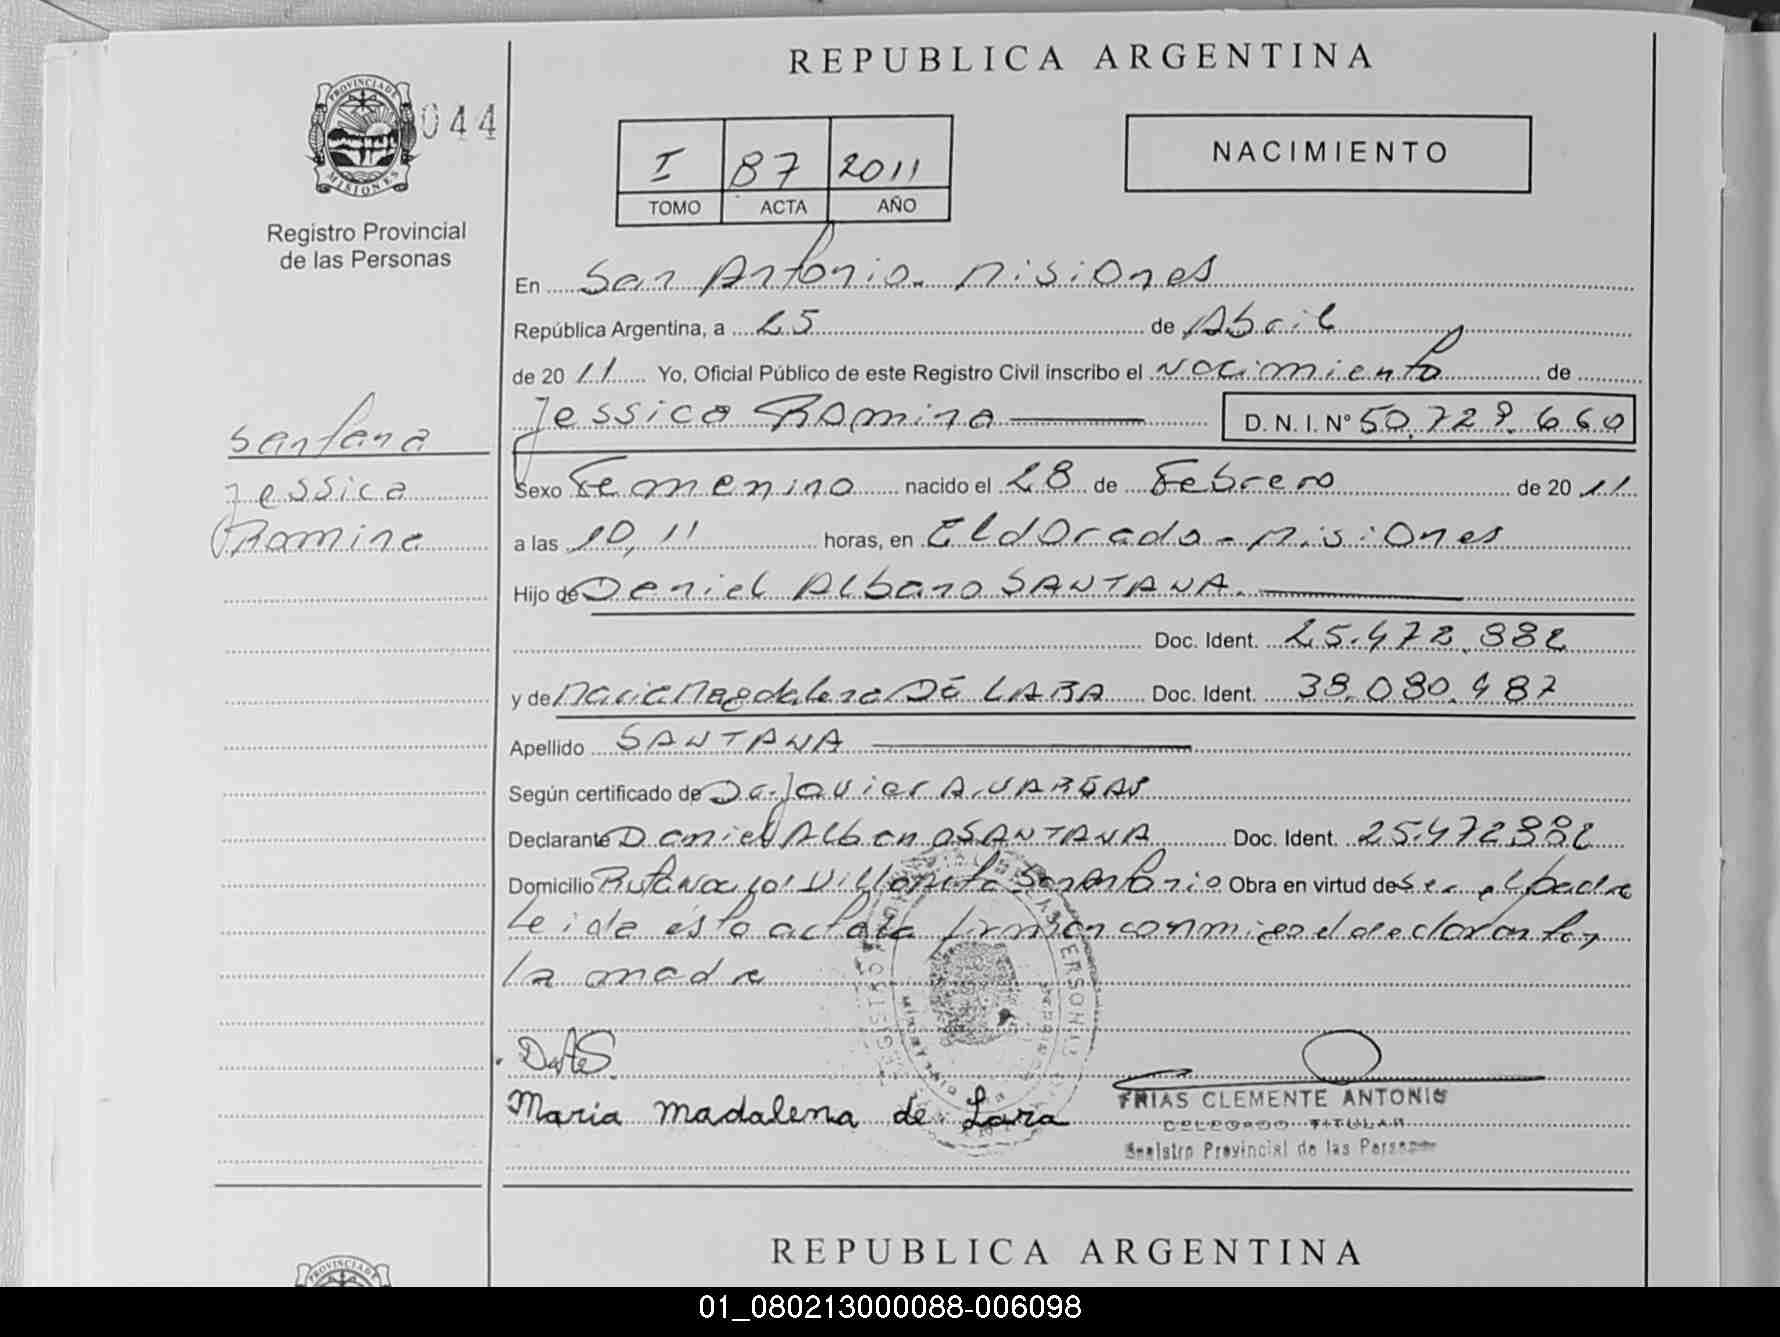 REPUBLICA ARGENTINA
PROVINCIA DE
MISIONES
044
Registro Provincial
de las Personas
I 87 2011
TOMO ACTA AÑO
NACIMIENTO
En San Antonio. Misiones
República Argentina, a 25 de Abril
de 2011 Yo, Oficial Público de este Registro Civil inscribo el Nacimiento de
Jessica Romina D. N. I. N° 50.729.660
Santana
Jessica
Romina
Sexo Femenino nacido el 28 de Febrero de 2011
a las 10,11 horas, en Eldorado - Misiones
Hijo de Daniel Albano SANTANA.
Doc. Ident. 25.472.882
y de Maria Magdalena DE LARA Doc. Ident. 38.080.487
Apellido SANTANA
Según certificado de Dr. Javier A. VARGAS
Declarante Daniel Albano SANTANA Doc. Ident. 25.472.882
Domicilio Ruta Nac 101 Villa San Antonio Obra en virtud de Ser el padre
Leida esta acta la firman conmigo el declarante y
la madre
DAS
Maria madalena de Lara
FRIAS CLEMENTE ANTONIO
DELEGADO TITULAR
Registro Provincial de las Personas
REPUBLICA ARGENTINA
PROVINCIA DE
01_080213000088-006098